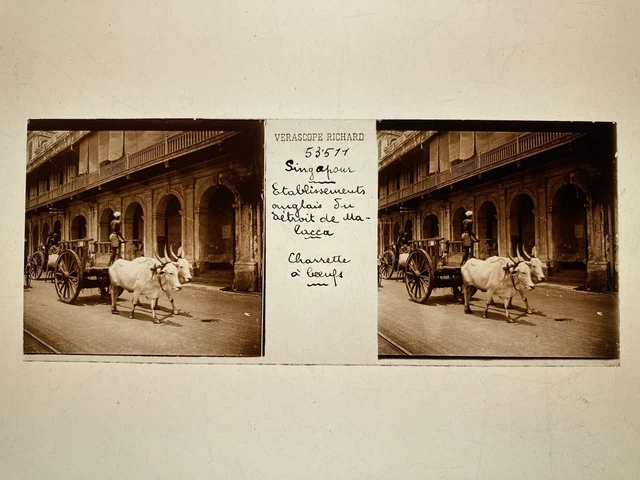 VERASCOPE RICHARD
53511
Singapour
Etablissements
anglais du
détroit de Ma-
lacca
Charrette
à bœufs